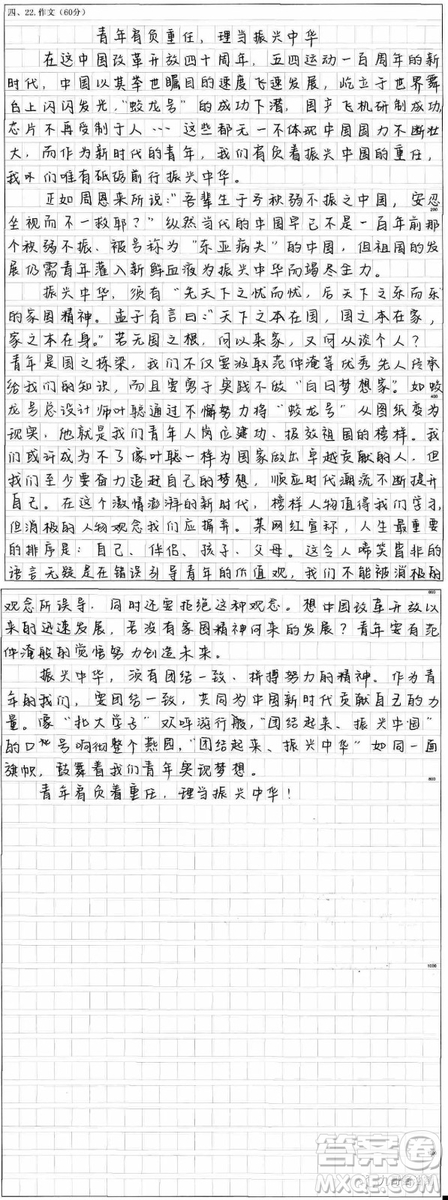 四、22.作文(60分)
青年肩负重任，理当振兴中华
在这中国改革开放四十周年，五四运动一百周年的新
时代，中国以其举世瞩目的速度飞速发展，屹立于世界舞
台上闪闪发光，“蛟龙号”的成功下潜，国产飞机研制成功
芯片不再受制于人……这些都无一不体现中国国力不断壮
大，而作为新时代的青年，我们肩负着振兴中国的重任，
我们唯有砥砺前行振兴中华。
正如周恩来所说：“吾辈生于兮秋弱不振之中国，安忍
坐视而不一救耶？”纵然当代的中国早已不是一百年前那
个秋弱不振、被号称为“东亚病夫”的中国，但祖国的发
展仍需青年落入新鲜血液为振兴中华而竭尽全力。
振兴中华，须有“先天下之忧而忧，后天下之乐而乐”
的家国精神。孟子有言曰：“天下之本在国，国之本在家，
家之本在身。”若无国之根，何以来家，又何从谈个人？
青年是国之栋梁，我们不仅要汲取范仲淹等优秀先人传承
给我们的知识，而且要勇于实践不做“白日梦想家”。如蛟
龙号总设计师叶聪通过不懈努力将“蛟龙号”从图纸变为
现实，他就是我们青年人岗位建功、报效祖国的榜样。我
们或许成为不了像叶聪一样为国家做出卓越贡献的人，但
我们至少要奋力追赶自己的梦想，顺应时代潮流不断提升
自己。在这个激情澎湃的新时代，榜样人物值得我们学习，
但消极的人物观念我们应摒弃。某网红宣称，人生最重要
的排序是：自己、伴侣、孩子、父母。这令人啼笑皆非的
语言无疑是在错误引导青年的价值观，我们不能被消极的
观念所误导，同时还要拒绝这种观念。想中国改革开放以
来的迅速发展，若没有家国精神何来的发展？青年要有范
仲淹般的觉悟努力创造未来。
振兴中华，须有团结一致、拼搏努力的精神。作为青
年的我们，要团结一致，共同为中国新时代贡献自己的力
量。像“北大学子”欢呼游行般，“团结起来、振兴中国”
的口号响彻整个燕园，“团结起来、振兴中华”如同一面
旗帜，鼓舞着我们青年实现梦想。
青年肩负着重任，理当振兴中华！
答案圈
MXQE.COM